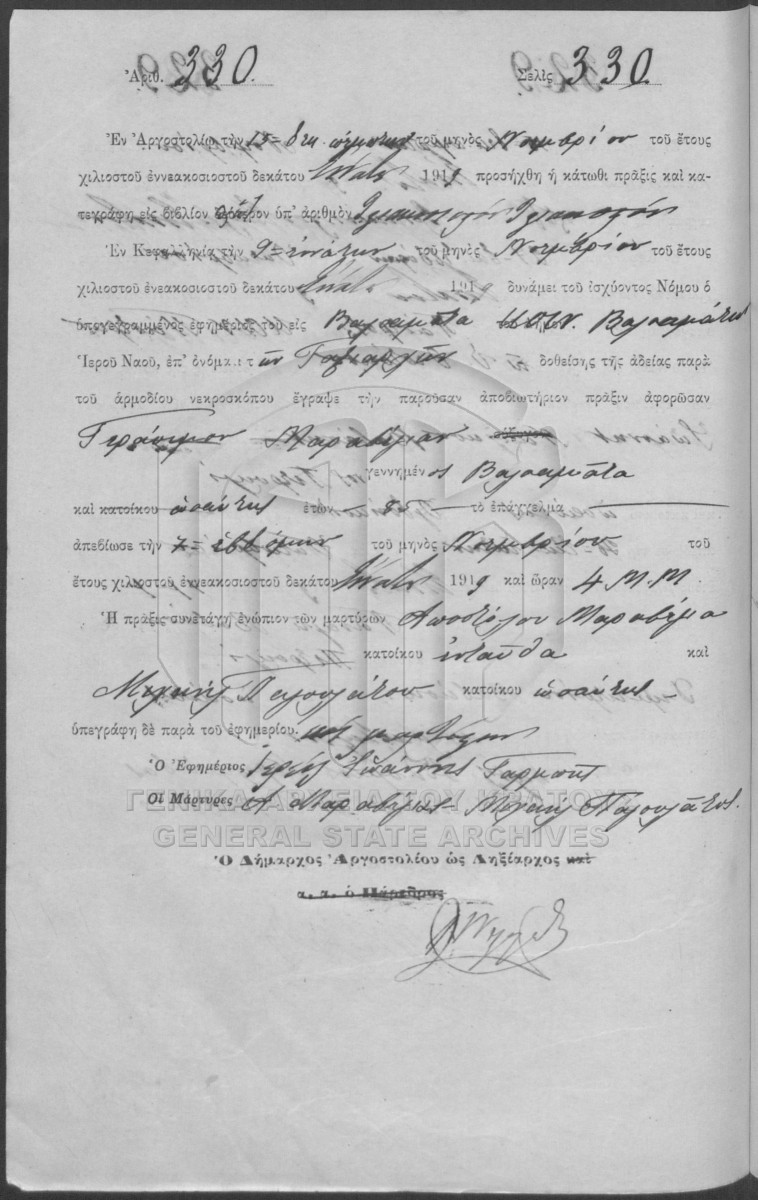 Ἀριθ. 330. Σελὶς 330.
Ἐν Ἀργοστολίῳ τὴν 15 = δεκ. πέμπτην τοῦ μηνὸς Νοεμβρίου τοῦ ἔτους
χιλιοστοῦ ἐννεακοσιοστοῦ δεκάτου Ἐνάτου 1919 προσήχθη ἡ κάτωθι πρᾶξις καὶ κα-
τεγράφη εἰς βιβλίον ὑπ' ἀριθμὸν Τριακοστὸν Τριακοστόν
Ἐν Κεφαλληνίᾳ τὴν 9 = ἐνάτην τοῦ μηνὸς Νοεμβρίου τοῦ ἔτους
χιλιοστοῦ ἐνεακοσιοστοῦ δεκάτου Ἐνάτου 1919 δυνάμει τοῦ ἰσχύοντος Νόμου ὁ
ὑπογεγραμμένος ἐφημέριος τοῦ εἰς Βαλσαμάτα Βαλσαμάτων
Ἱεροῦ Ναοῦ, ἐπ' ὀνόματι τῶν Ταξιαρχῶν δοθείσης τῆς ἀδείας παρὰ
τοῦ ἁρμοδίου νεκροσκόπου ἔγραψε τὴν παροῦσαν ἀποβιωτήριον πρᾶξιν ἀφορῶσαν
Γεράσιμον Μαραβέγιαν
γεννημένος Βαλσαμάτα
καὶ κατοίκου ὡσαύτως ἐτῶν 85 τὸ ἐπάγγελμα
ἀπεβίωσε τὴν 7 = ἑβδόμην τοῦ μηνὸς Νοεμβρίου τοῦ
ἔτους χιλιοστοῦ ἐννεακοσιοστοῦ δεκάτου Ἐνάτου 1919 καὶ ὥραν 4 Μ.Μ.
Ἡ πρᾶξις συνετάγη ἐνώπιον τῶν μαρτύρων Ἀποστόλου Μαραβέγια
κατοίκου ἐνταῦθα καὶ
Μιχαὴλ κατοίκου ὡσαύτως
ὑπεγράφη δὲ παρὰ τοῦ ἐφημερίου. καὶ μαρτύρων
Ὁ Ἐφημέριος Ἱερεὺς Ἰωάννης Γαρμπῆς
Οἱ Μάρτυρες Α Μαραβέγιας Μιχαὴλ
ΓΕΝΙΚΑ ΑΡΧΕΙΑ ΤΟΥ ΚΡΑΤΟΥΣ
GENERAL STATE ARCHIVES
Ὁ Δήμαρχος Ἀργοστολίου ὡς Ληξίαρχος καὶ
α. α. ὁ Πάρεδρος